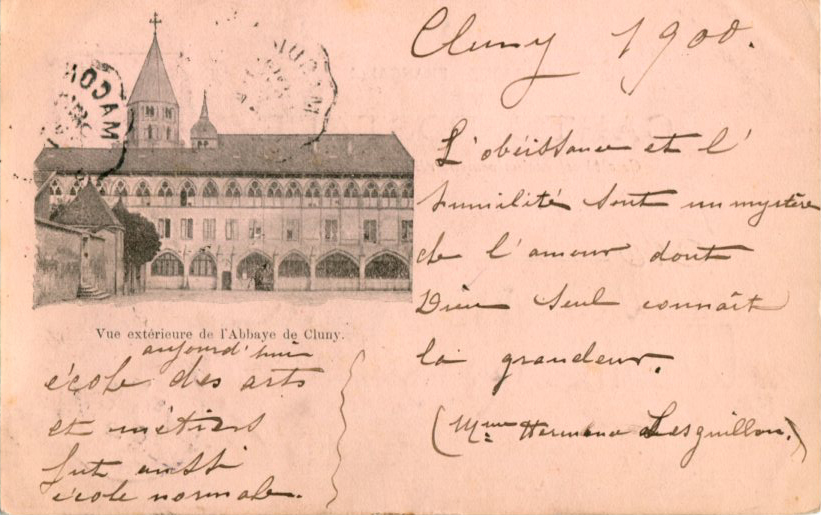 Cluny 1900.
L'obéissance et l'
humilité sont un mystère
de l'amour dont
Dieu seul connaît
la grandeur.
(Mme Hermance Lesguillon.)
MACON
MACON
Vue extérieure de l'Abbaye de Cluny.
aujourd'hui
école des arts
et métiers
fut aussi
école normale.